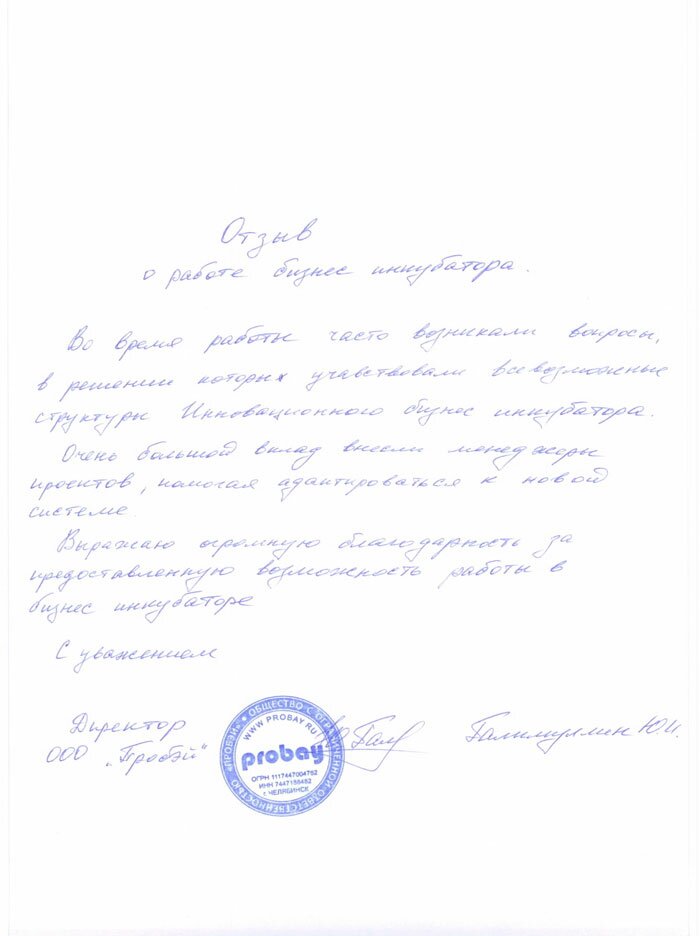 Отзыв
о работе бизнес инкубатора.
Во время работы часто возникали вопросы,
в решении которых учавствовали всевозможные
структуры Инновационного бизнес инкубатора.
Очень большой вклад внесли менеджеры
проектов, помогая адаптироваться к новой
системе.
Выражаю огромную благодарность за
предоставленную возможность работы в
бизнес инкубаторе
С уважением
Директор
ООО „Пробэй“
ОБЩЕСТВО С ОГРАНИЧЕННОЙ ОТВЕТСТВЕННОСТЬЮ «ПРОБЭЙ»
WWW.PROBAY.RU
probay
ОГРН 1117447004762
г. ЧЕЛЯБИНСК
Галимуллин Ю.И.